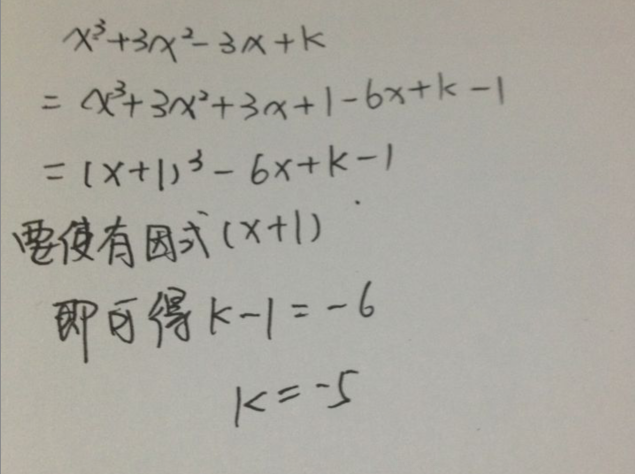 x³+3x²-3x+k
= x³+3x²+3x+1-6x+k-1
= (x+1)³-6x+k-1
要使有因式(x+1)
即可得k-1=-6
k=-5